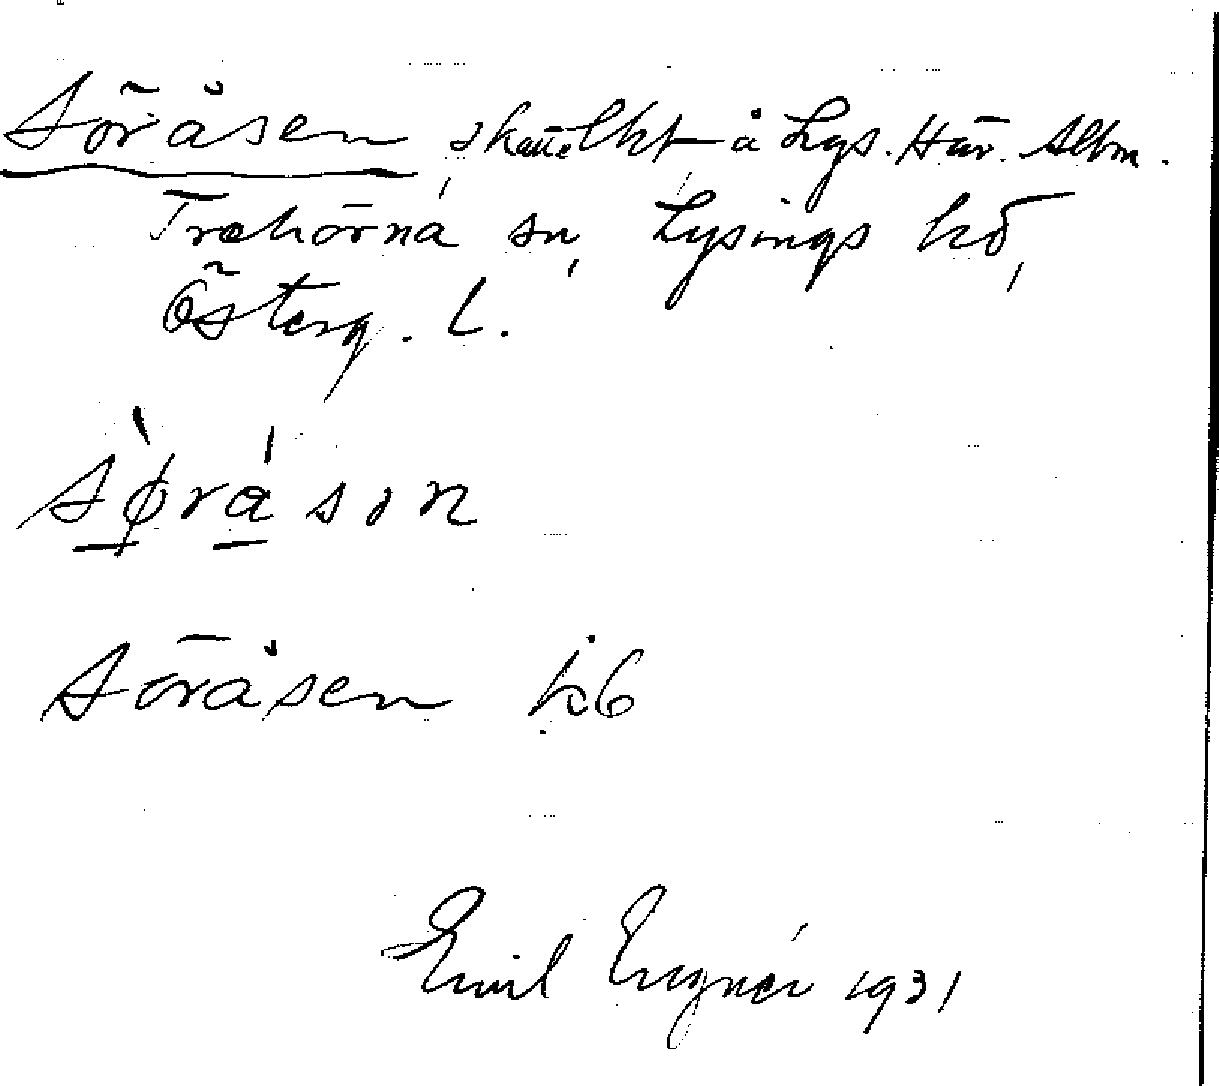 Söråsen skatte lht å Lys. Här. Allm.
Trehörna sn, Lysings hd,
Österg. L.
sø̀rásən
Söråsen
Emil 1931